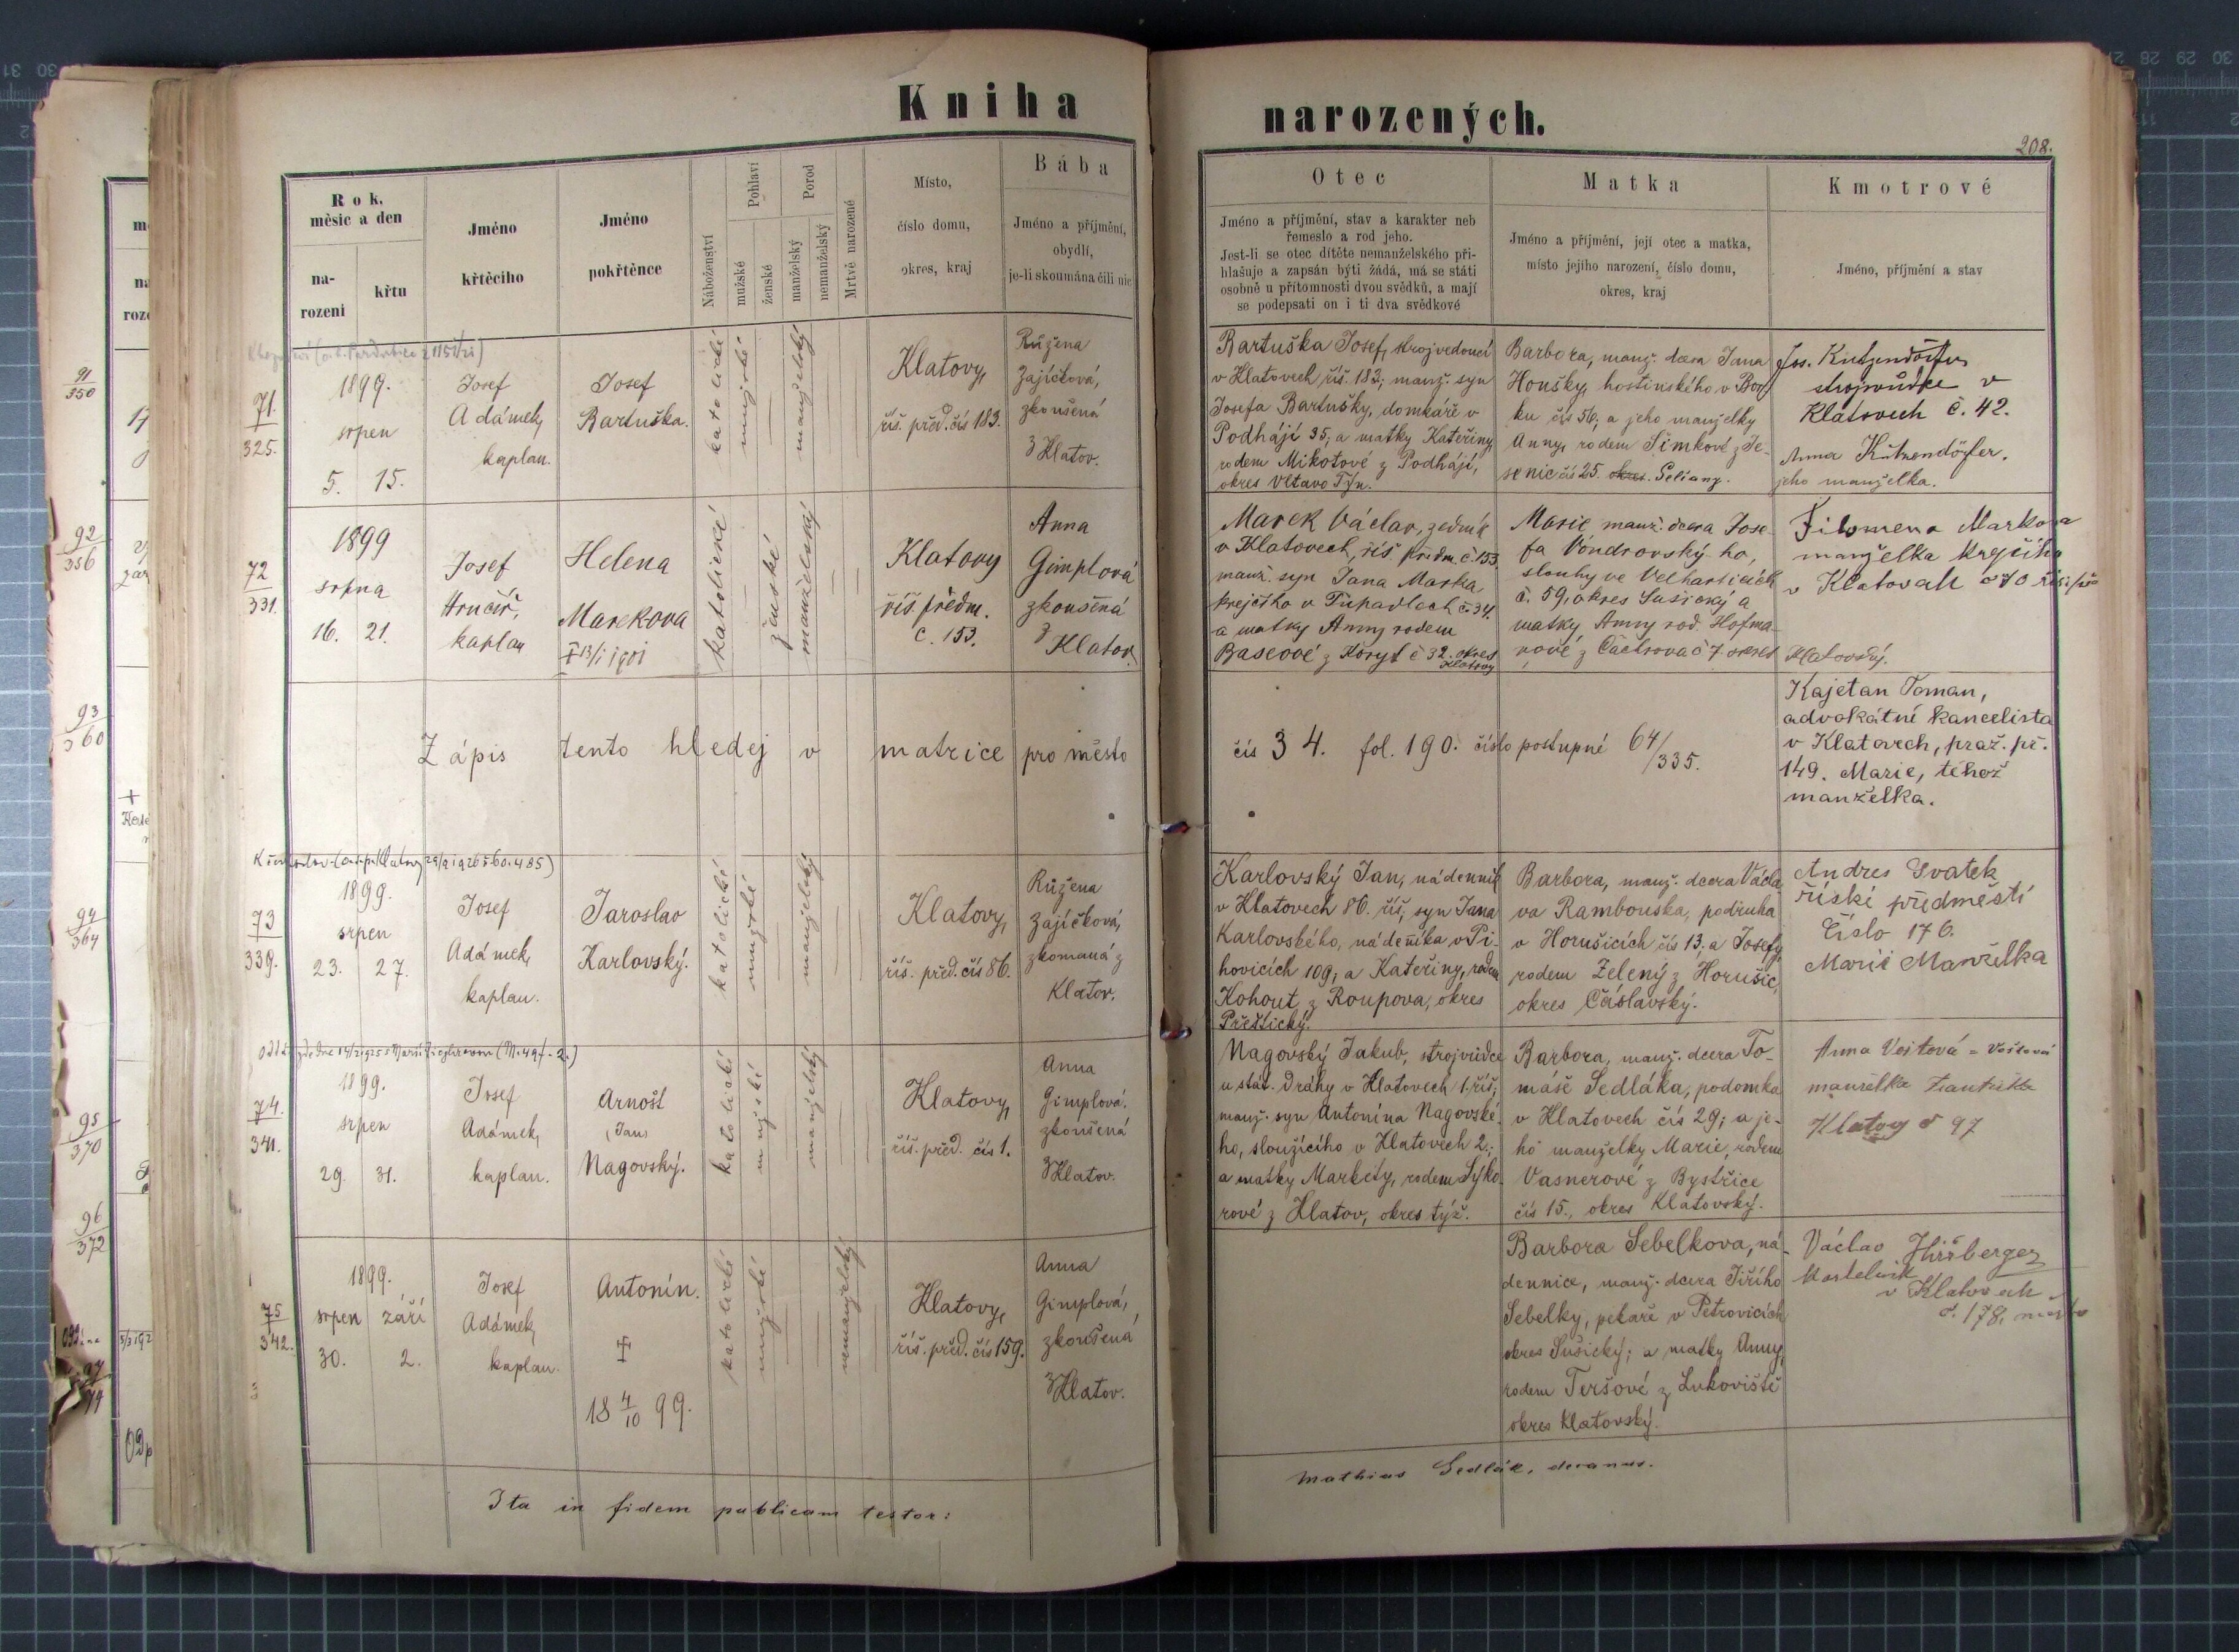 Kniha narozených.
208.
Rok, měsíc a den
narození
křtu
Jméno křtěcího
Jméno pokřtěnce
Náboženství
Pohlaví
mužské
ženské
Porod
manželský
nemanželský
Mrtvě narozené
Místo,
číslo domu,
okres, kraj
Bába
Jméno a příjmění,
obydlí,
je-li skoumána čili nic
Otec
Jméno a příjmění, stav a karakter neb
řemeslo a rod jeho.
Jest-li se otec dítěte nemanželského při-
hlašuje a zapsán býti žádá, má se státi
osobně u přítomnosti dvou svědků, a mají
se podepsati on i ti dva svědkové
Matka
Jméno a příjmění, její otec a matka,
místo jejího narození, číslo domu,
okres, kraj
Kmotrové
Jméno, příjmění a stav
71.
325.
1899.
srpen
5. 15.
Josef
Adámek,
kaplan.
Josef
Bartuška.
katolické
mužské
manželský
Klatovy,
říš. před. čís 183.
Růžena
Zajíčková,
zkoušená
z Klatov.
Bartuška Josef, strojvedoucí
v Klatovech říš. 183; manž. syn
Josefa Bartušky, domkáře v
Podhájí 35; a matky Kateřiny,
rodem Mikotové z Podhájí,
okres Vltavo Týn.
Barbora, manž. dcera Jana
Houšky, hostinského v Bor
ku čís 56, a jeho manželky
Anny, rodem Šimkové z Je-
senic čís 25. okres. Selčany.
strojvůdce v
Klatovech č. 42.
jeho manželka.
72
331.
1899
srpna
16. 21.
Josef
Hrnčíř,
kaplan
Helena
Marekova
† 13/1 1901
katolické
ženské
manželský
Klatovy
říš. předm.
č. 153.
Anna
Gimplová
zkoušená
z Klatov.
Marek Václav, zedník
v Klatovech, říš předm. č. 153
manž. syn Jana Marka
krejčího v Tupadlech č. 34.
a matky Anny rodem
č 32. okres
Klatovy
Marie manž. dcera Jose-
fa Vondrovský-ho,
slouhy ve Velharticích
č. 59, okres Sušický a
matky Anny rod. Hofma-
nové z Čachrova č 7 okres
Klatovský.
Filomena Markova
manželka krejčího
v Klatovach
Zápis tento hledej v matrice pro město čís 34. fol. 190. číslo postupné 64/335.
Kajetan Toman,
advokátní kancelista
v Klatovech, praž. př.
149. Marie, téhož
manželka.
73
339.
1899.
srpen
23. 27.
Josef
Adámek,
kaplan.
Jaroslav
Karlovský.
katolické
mužské
manželský
Klatovy,
říš. před. čís 86.
Růžena
Zajíčková,
zkoumaná z
Klatov.
Karlovský Jan, nádenník
v Klatovech 86. říš; syn Jana
Karlovského, nádeníka v Pi-
hovicích 109; a Kateřiny, rodem
Kohout z Roupova, okres
Přeštický.
Barbora, manž. dcera Václa-
va Rambouska, podruha
v Horušicích čís 13, a Josefy,
rodem Zelený z Horušic,
okres Čáslavský.
Andres Svatek
říské předměstí
Číslo 176.
Marie Manželka
74.
341.
1899.
srpen
29. 31.
Josef
Adámek,
kaplan.
Arnošt
(Jan)
Nagovský.
katolické
mužské
manželský
Klatovy,
říš. před. čís 1.
Anna
Gimplová.
zkoušená
z Klatov.
Nagovský Jakub, strojvůdce
u stát. dráhy v Klatovech 1. říš;
manž. syn Antonína Nagovské-
ho, sloužícího v Klatovech 2.;
a matky Markéty, rodem Sýko-
rové z Klatov, okres týž.
Barbora, manž. dcera To-
máše Sedláka, podomka
v Klatovech čís 29; a je-
ho manželky Marie, rodem
Vasnerové z Bystřice
čís 15., okres Klatovský.
Anna Vojtová
manželka
Klatovy č 97
75
342.
1899.
srpen září
30. 2.
Josef
Adámek,
kaplan.
Antonín.
†
18 4/10 99.
katolické
mužské
nemanželský
Klatovy,
říš. před. čís 159.
Anna
Gimplová,
zkoušená
z Klatov.
Barbora Sebelkova, ná-
dennice, manž. dcera Jiřího
Sebelky, pekaře v Petrovicích
okres Sušický; a matky Anny,
rodem Teršové z Lukoviště
okres Klatovský.
Václav Hiršberger
v Klatovech
č. 178, město
Ita in fidem publicam testor: Mathias Sedlák, decanus.
91
350
92
356
93
360
94
364
95
370
96
372